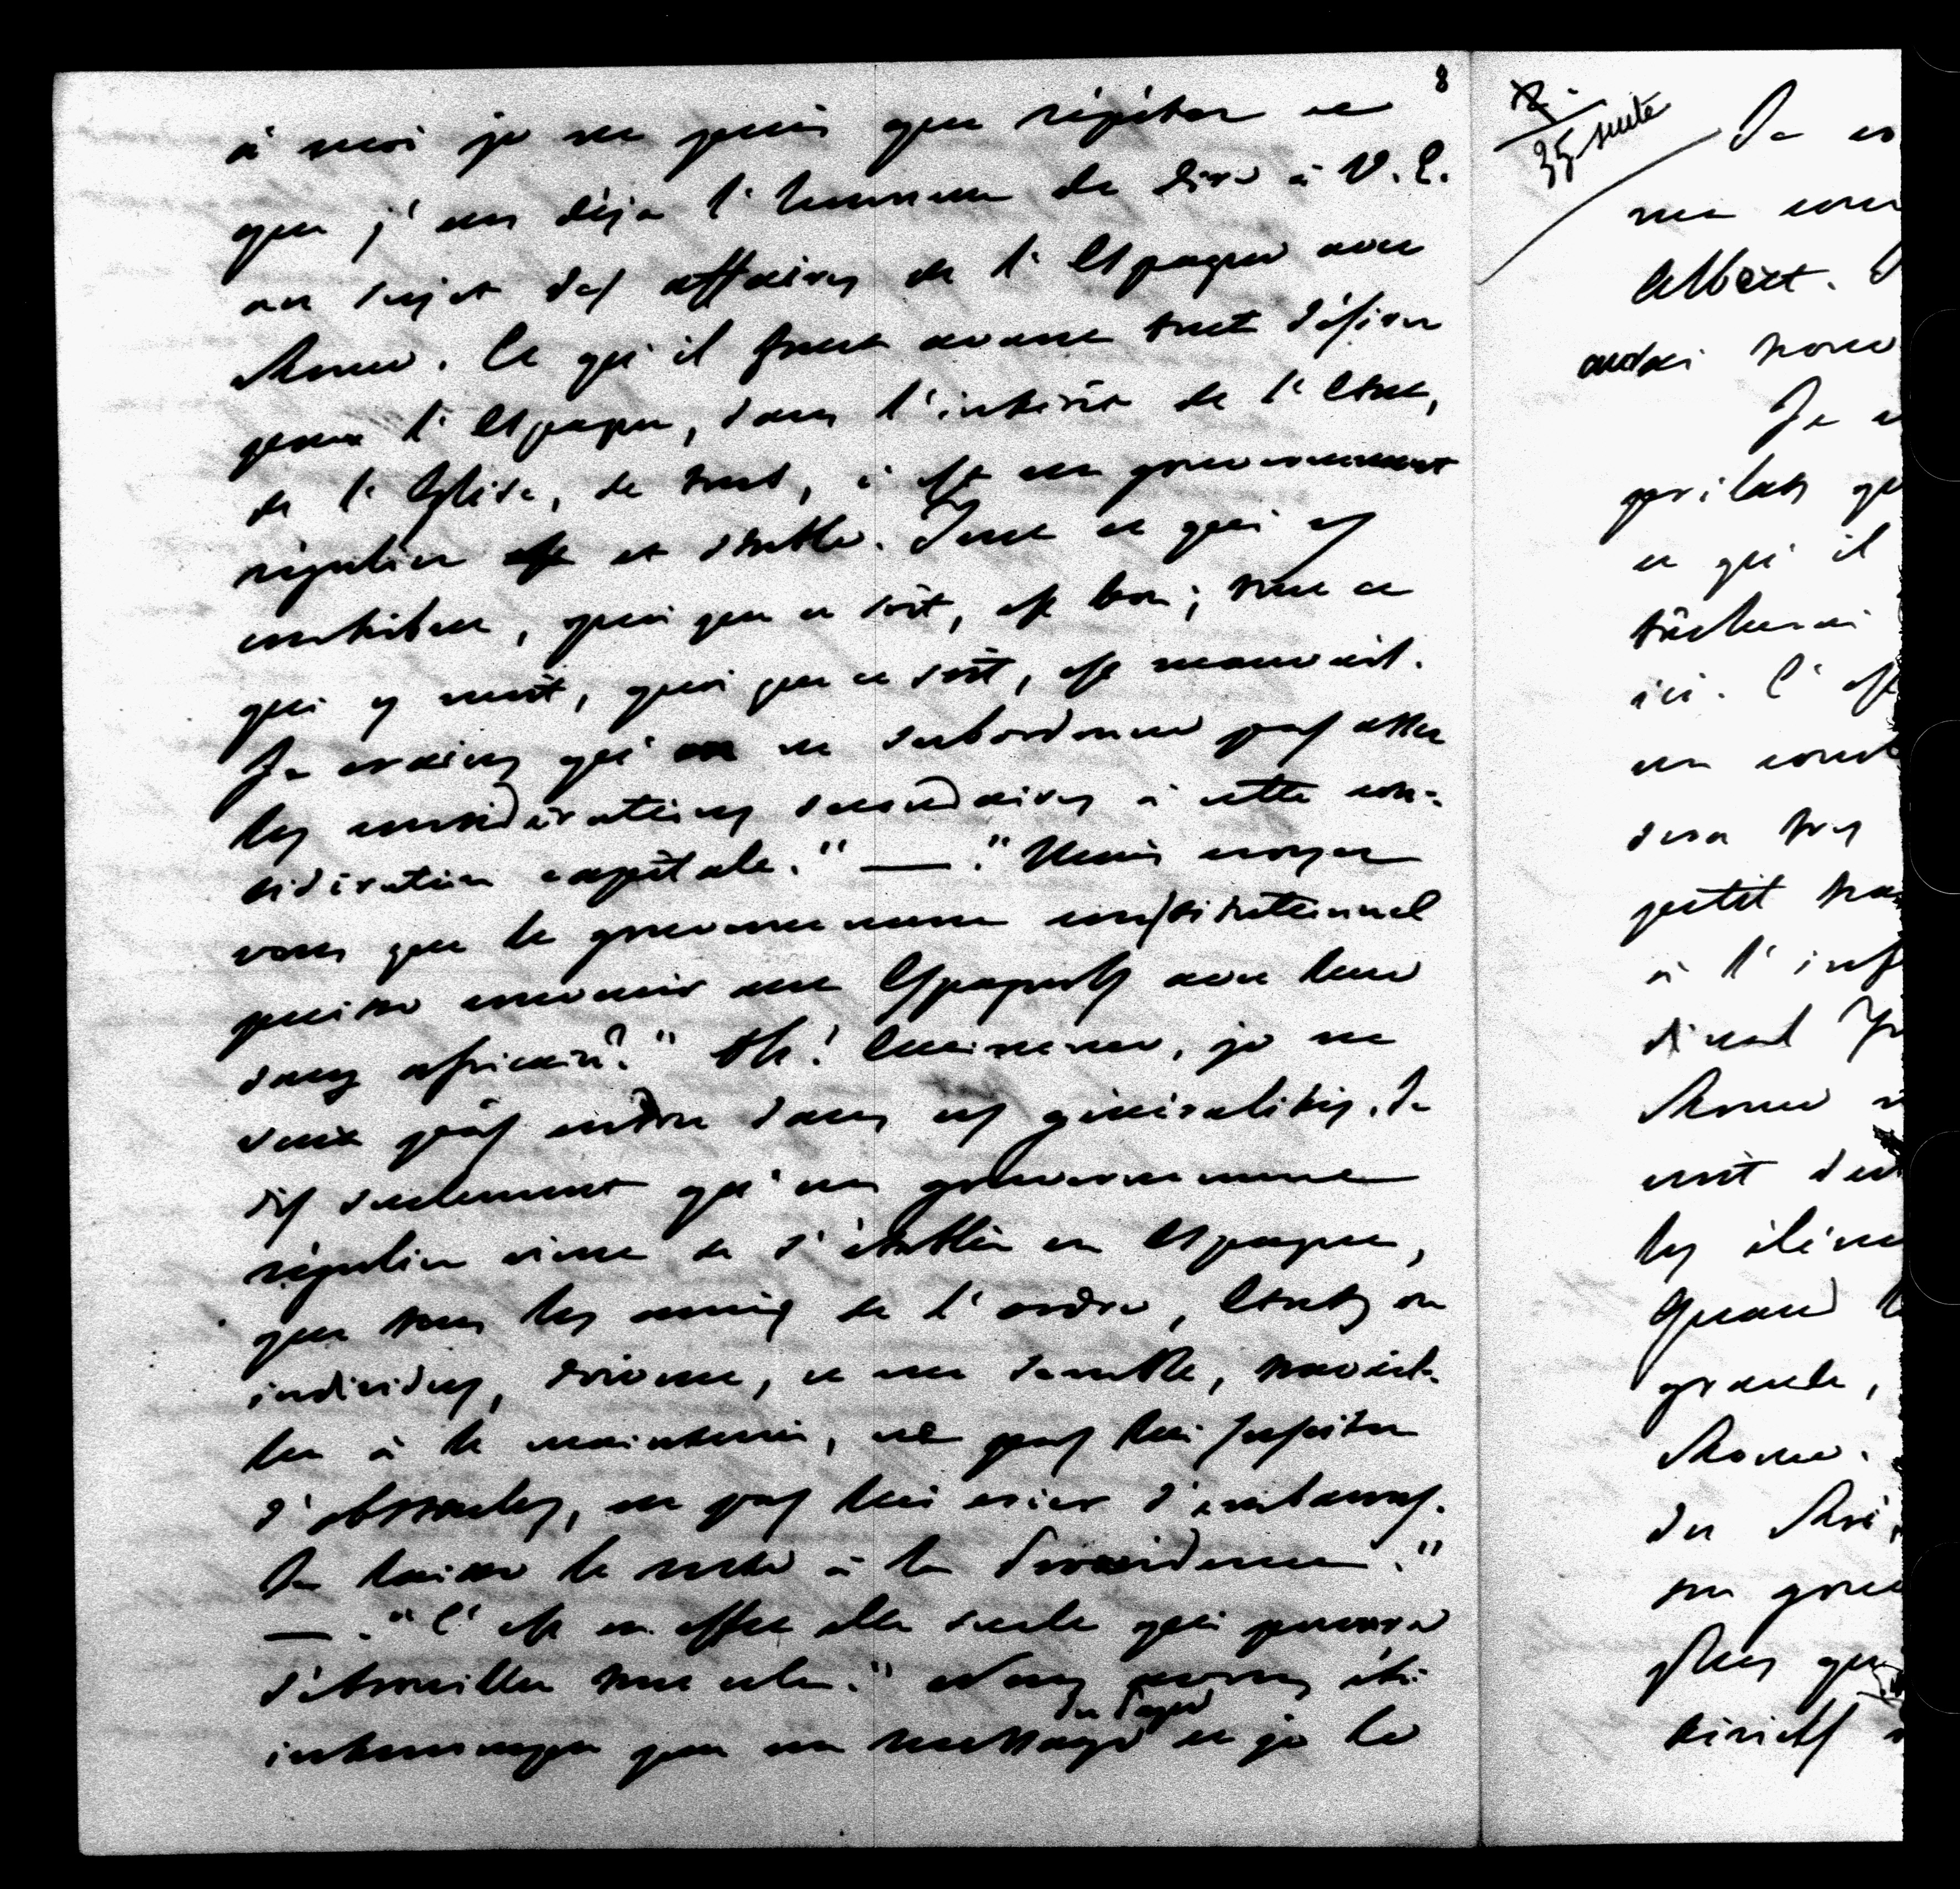 8
à moi je ne puis que répéter ce
que j'ai eu déja l'honneur de dire à V. E.
au sujet des affaires de l'Espagne avec
Rome. Ce qu'il faut avant tout désirer
pour l'Espagne, dans l'intérêt de l'Etat,
de l'Eglise, de tout, c'est un gouvernement
régulier et stable. Tout ce qui y
contribue, quoi que ce soit, est bon; tout ce
qui y nuit, quoi que ce soit, est mauvais.
Je crains qu'on ne subordonne pas assez
les considérations secondaires à cette con-
sidération capitale." — "Mais croyez
vous que le gouvernement constitutionnel
puisse convenir aux Espagnols avec leur
sang africain?" Oh! Eminence, je ne
veux pas entrer dans ces généralités. Je
dis seulement qu'un gouvernement
régulier vient de s'établir en Espagne,
que tous les amis de l'ordre, Etats ou
individus, doivent, ce me semble, travail-
ler à le maintenir, ne pas lui susciter
d'obstacles, ne pas lui créer d'embarras.
Je laisse le reste à la Providence."
— "C'est en effet elle seule qui pourra
débrouiller tout cela." Nous avons été
interrompu par un message du Pape et je le
X.
35 suite
Je
me
Albert.
audai
Je
prélats
ce qu'il
tâcherai
ici. C'est
un
sera très
petit
à l'inf
Rome
les
Quand
grande,
Rome.
du Roi,